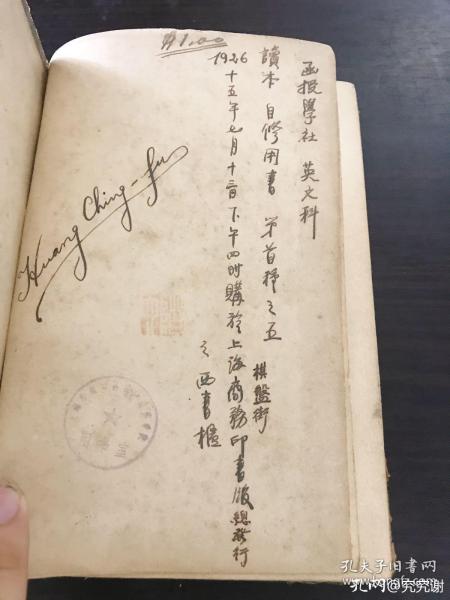 $1.00
函授學社 英文科
讀本 自修用書 第首種之五
棋盤街
1926
十五年七月十三日下午四时購於上海商務印書館總發行
之西書櫃
Huang Ching-fu
孔夫子旧书网
孔网@究究谢